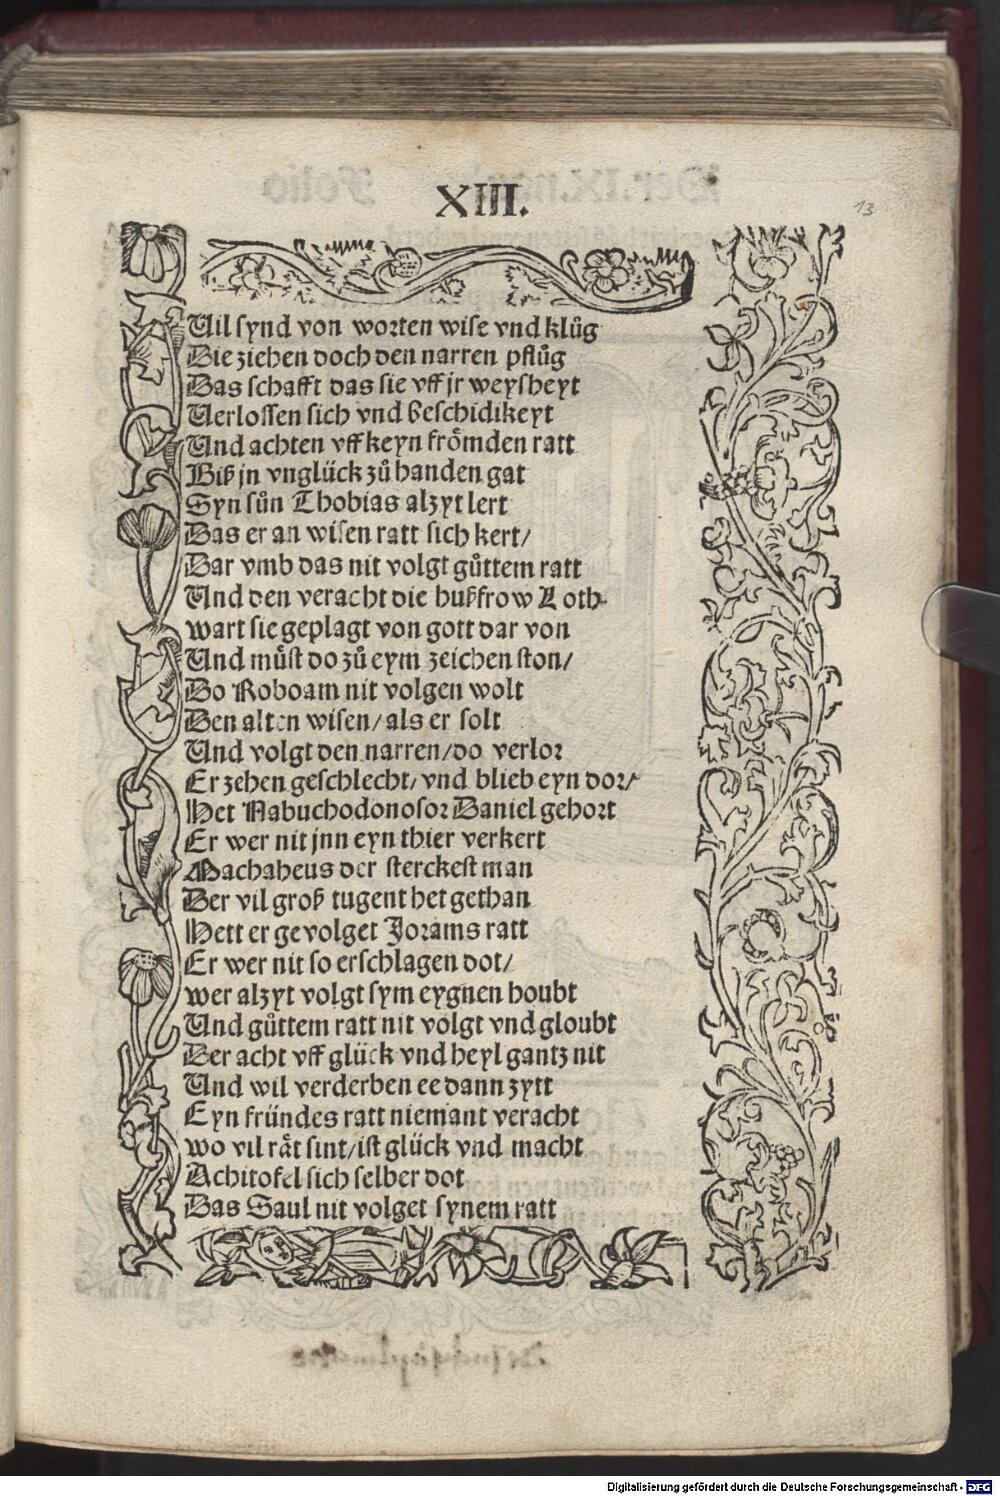 XIII.
13
Uil synd von worten wise vnd klůg
Die ziehen doch den narren pflůg
Das schafft das sie vff jr weysheyt
Uerlossen sich vnd beschidikeyt
Und achten vff keyn frömden ratt
Biß jn vnglück zů handen gat
Syn sůn Thobias alzyt lert
Das er an wisen ratt sich kert/
Dar vmb das nit volgt gůttem ratt
Und den veracht die hußfrow Loth
wart sie geplagt von gott dar von
Und můst do zů eym zeichen ston/
Do Roboam nit volgen wolt
Den alten wisen/als er solt
Und volgt den narren/do verlor
Er zehen geschlecht/vnd blieb eyn dor/
Het Nabuchodonosor Daniel gehort
Er wer nit jnn eyn thier verkert
Machabeus der sterckest man
Der vil groß tugent het gethan
Hett er gevolget Jorams ratt
Er wer nit so erschlagen dot/
wer alzyt volgt sym eygnen houbt
Und gůttem ratt nit volgt vnd gloubt
Der acht vff glück vnd heyl gantz nit
Und wil verderben ee dann zytt
Eyn fründes ratt niemant veracht
wo vil rät sint/ist glück vnd macht
Achitofel sich selber dot
Das Saul nit volget synem ratt
Digitalisierung gefördert durch die Deutsche Forschungsgemeinschaft - DFG